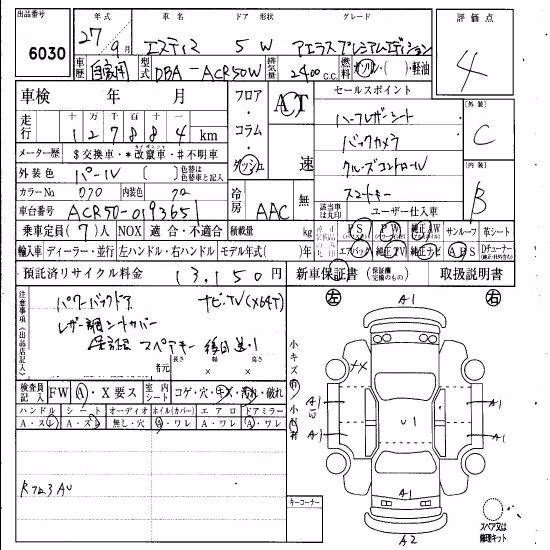 出品番号 年式 車名 ドア 形状 グレード 評価点
6030 27年 9月 エスティマ 5 W アエラスプレミアムエディション 4
車歴 自家用 型式 DBA-ACR50W 排気量 2400 c.c. 燃料 ガソリン・( )・軽油
車検 年 月 フロア・コラム・ダッシュ AT 速 セールスポイント
走行 十万 千 百 十 一
127884 km ハーフレザーシート 外装 C
メーター歴 $交換車・*改竄車・#不明車 バックカメラ
外装色 パール 〔 〕 色替は色替車と記入 クルーズコントロール 内装 B
カラーNo 070 冷房 AAC 無 スマートキー
車台番号 ACR50-0193651 該当車は丸印 ユーザー仕入車
乗車定員(7)人 NOX 適合・不適合 積載量 kg PS PW サンルーフ 革シート
輸入車 ディーラー・並行 左ハンドル・右ハンドル モデル年式( )年 エアバック 純正TV 純正ナビ ABS Dチューナー
預託済リサイクル料金 13,150円 新車保証書(保証欄完備のもの) 取扱説明書
注意事項(出品店記入)
パワーバックドア ナビ.TV(X64T)
レザー調シートカバー
保証書 スペアキー 後日送り
長さ 幅 高さ
左 A1 右
小キズ有
小凹有
検査員記入 FW A・X要ス 室内シート コゲ・穴・キズ・汚れ・破れ
ハンドル シート オーディオ ホイル(カバー) エアロ ドアミラー
A・スレ A・スレ 無し・穴 A・ワレ A・ワレ A・ワレ
A1 A1
A1 U1 A1
A1
A2
キーコーナー
スペア又は修理キット